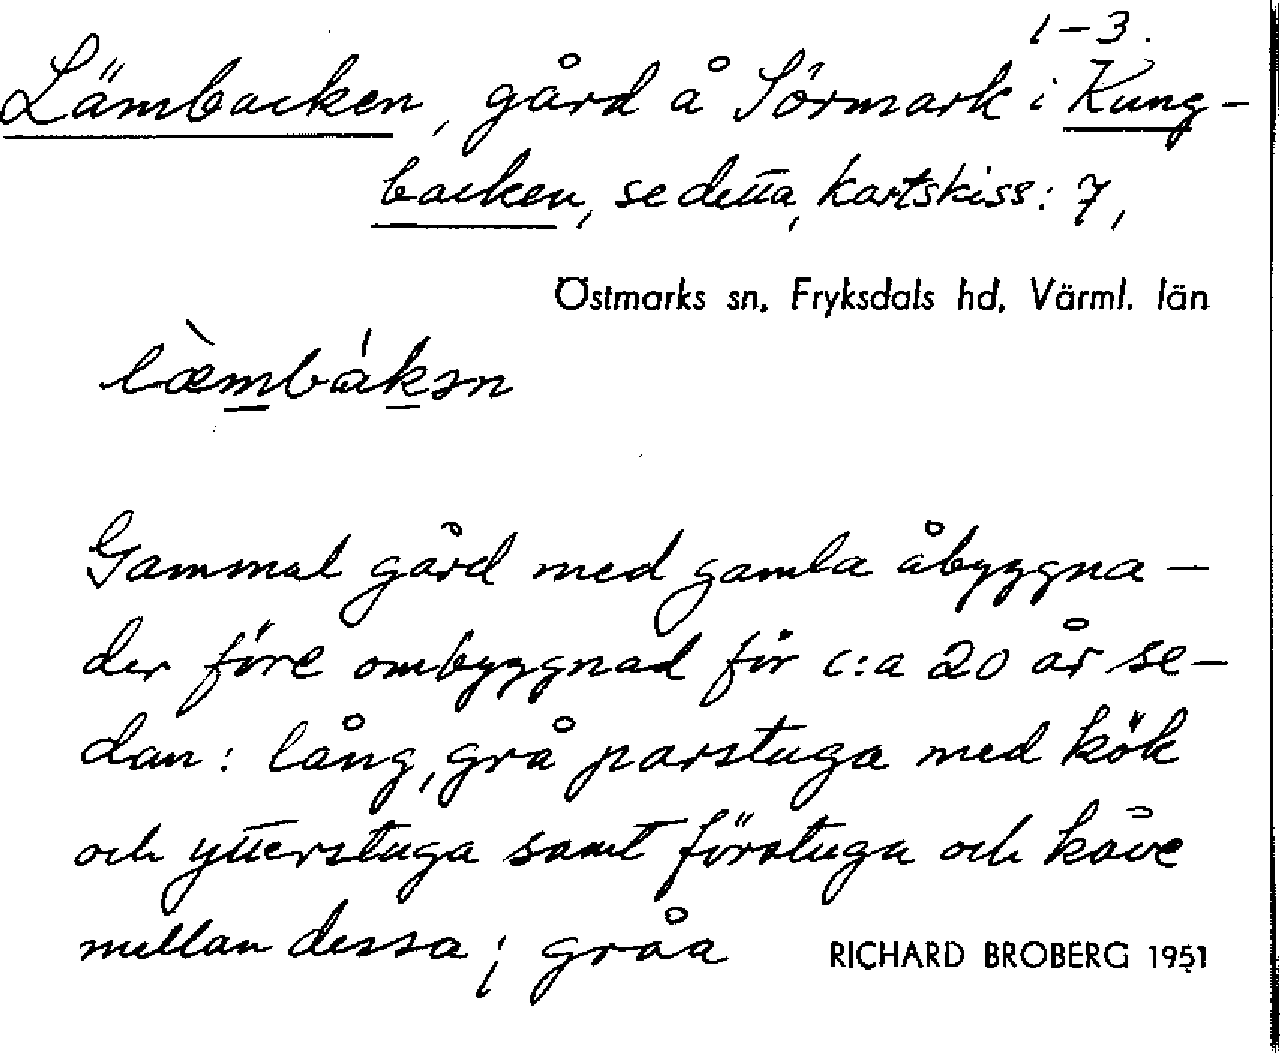 1-3.
Lämbacken, gård å Sörmark i Kung-
backen, se detta, kartskiss: 7,
Östmarks sn, Fryksdals hd, Värml. län
læ̀mbákən
Gammal gård med gamla åbyggna-
der före ombyggnad för c:a 20 år se-
dan: lång, grå parstuga med kök
och ytterstuga samt förstuga och kåve
mellan dessa; gråa
RICHARD BROBERG 1951